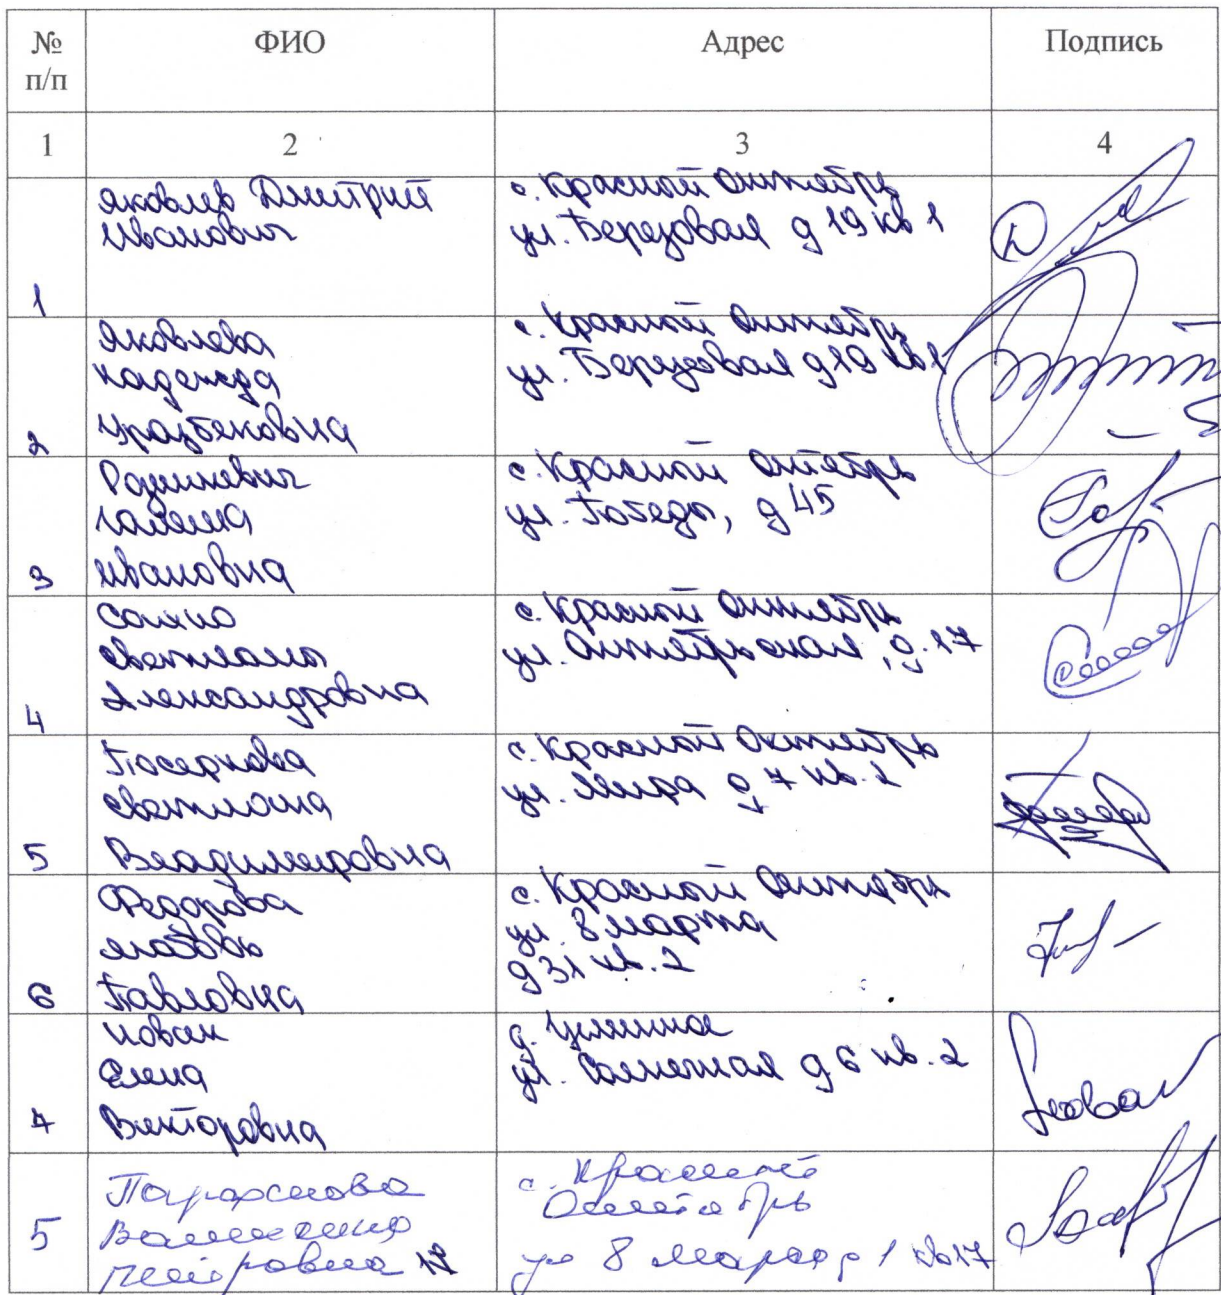 № п/п ФИО Адрес Подпись
1 2 3 4
Яковлев Дмитрий
Иванович
с. Красный Октябрь
ул. Березовая д 19 кв 1
1
Яковлева
Надежда
Уразбековна
с. Красный Октябрь
ул. Березовая д 19 кв 1
2
Галина
Ивановна
с. Красный Октябрь
ул. Победы, д 45
3
Светлана
Александровна
с. Красный Октябрь
ул. Октябрьская, д. 17
4
Светлана
Владимировна
с. Красный Октябрь
ул. Мира д 7 кв. 2
5
Федорова
Любовь
Павловна
с. Красный Октябрь
ул. 8 Марта
д 31 кв. 2
6
Новак
Елена
Викторовна
д. Целинное
ул. Солнечная д 6 кв. 2
7
Валентина
Петровна
с. Красный
Октябрь
ул 8 марта д 1 кв 17
5